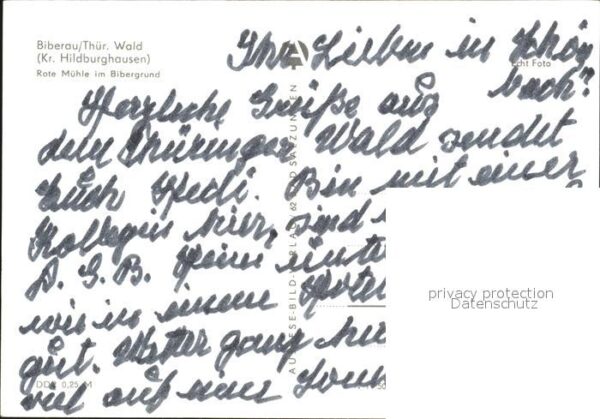 Biberau/Thür. Wald
(Kr. Hildburghausen)
Rote Mühle im Bibergrund
Echt Foto
Ihr Lieben in Schön
bach!
Herzliche Grüße aus
dem Thüringer Wald sendet
Euch Hedi. Bin mit einer
Kollegin hier, sind
D. G. B. Heim unter
wir in einem Hotel
gut. Wetter ganz
viel auf eine
AUSLESE-BILD-VERLAG BAD SALZUNGEN
DDR 0,25 M
privacy protection
Datenschutz